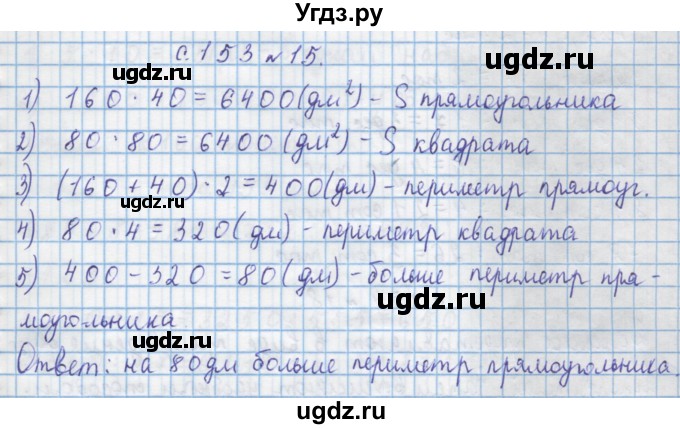 Угдз.ру
с. 153 №15.
1) 160 · 40 = 6400 (дм²) – S прямоугольника
2) 80 · 80 = 6400 (дм²) – S квадрата
3) (160 + 40) · 2 = 400 (дм) – периметр прямоуг.
4) 80 · 4 = 320 (дм) – периметр квадрата
5) 400 – 320 = 80 (дм) – больше периметр пря-
моугольника
Ответ: на 80 дм больше периметр прямоугольника.
ugdz.ru
ugdz.ru
ugdz.ru
ugdz.ru
ugdz.ru
ugdz.ru
ugdz.ru